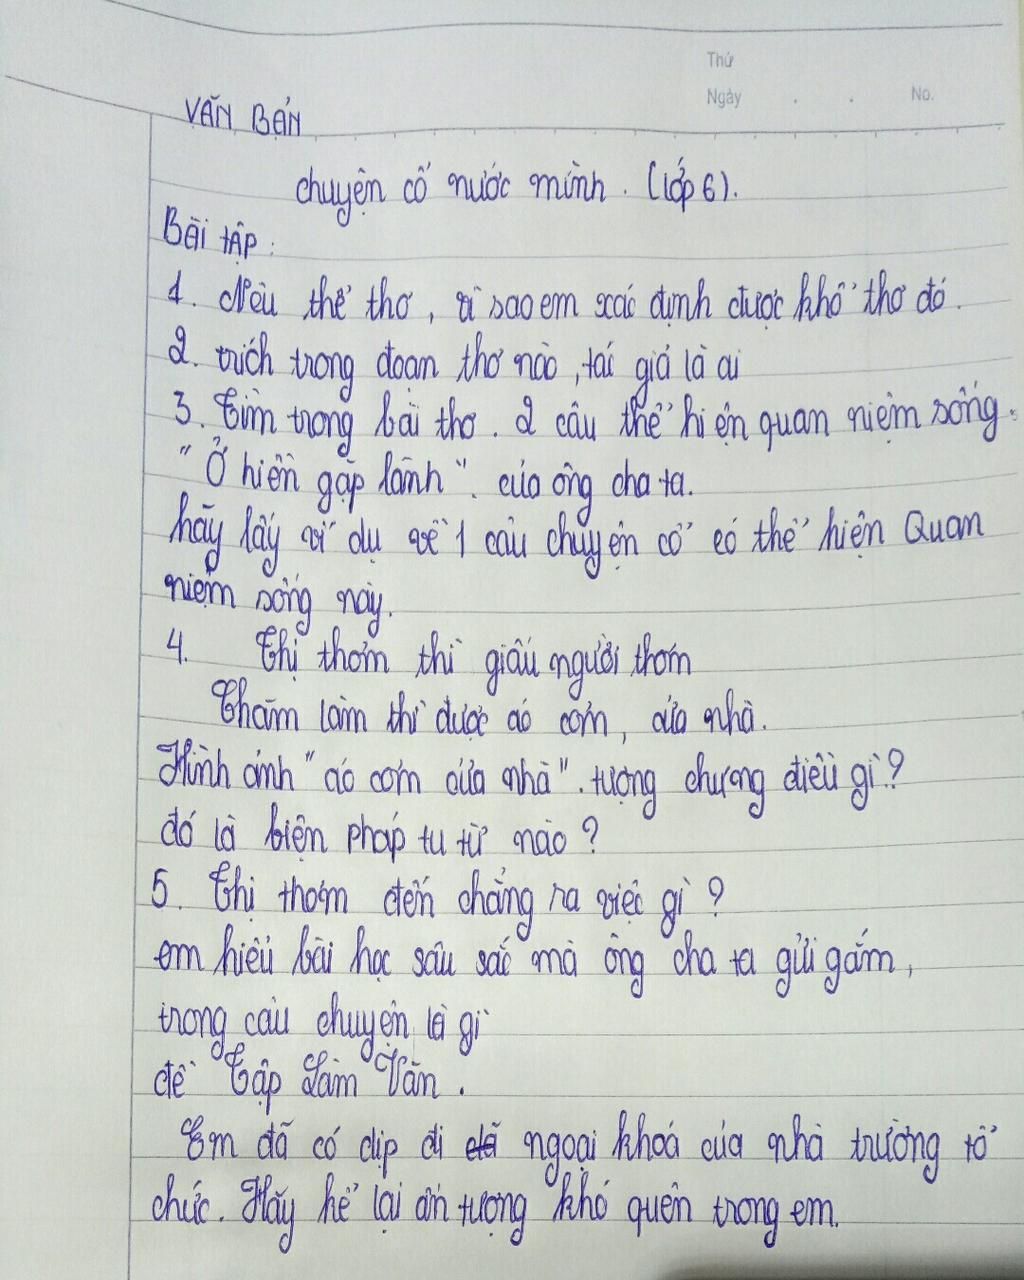 Thứ
Ngày . . No.
VĂN BẢN
chuyện cổ nước mình. (lớp 6).
Bài tập:
1. Nêu thể thơ, vì sao em xác định được khổ thơ đó.
2. trích trong đoạn thơ nào, tác giả là ai
3. Tìm trong bài thơ. 2 câu thể hiện quan niệm sống.
"Ở hiền gặp lành". của ông cha ta.
hãy lấy ví dụ về 1 câu chuyện cổ có thể hiện Quan
niệm sống này.
4. Thị thơm thì giấu người thơm
Chăm làm thì được áo cơm, cửa nhà.
Hình ảnh "áo cơm cửa nhà". tượng chưng điều gì?
đó là biện pháp tu từ nào?
5. Thị thơm đến chẳng ra việc gì?
em hiểu bài học sâu sắc mà ông cha ta gửi gắm,
trong câu chuyện là gì
đề Tập Làm Văn.
Em đã có dịp đi đã ngoại khoá của nhà trường tổ
chức. Hãy kể lại ấn tượng khó quên trong em.